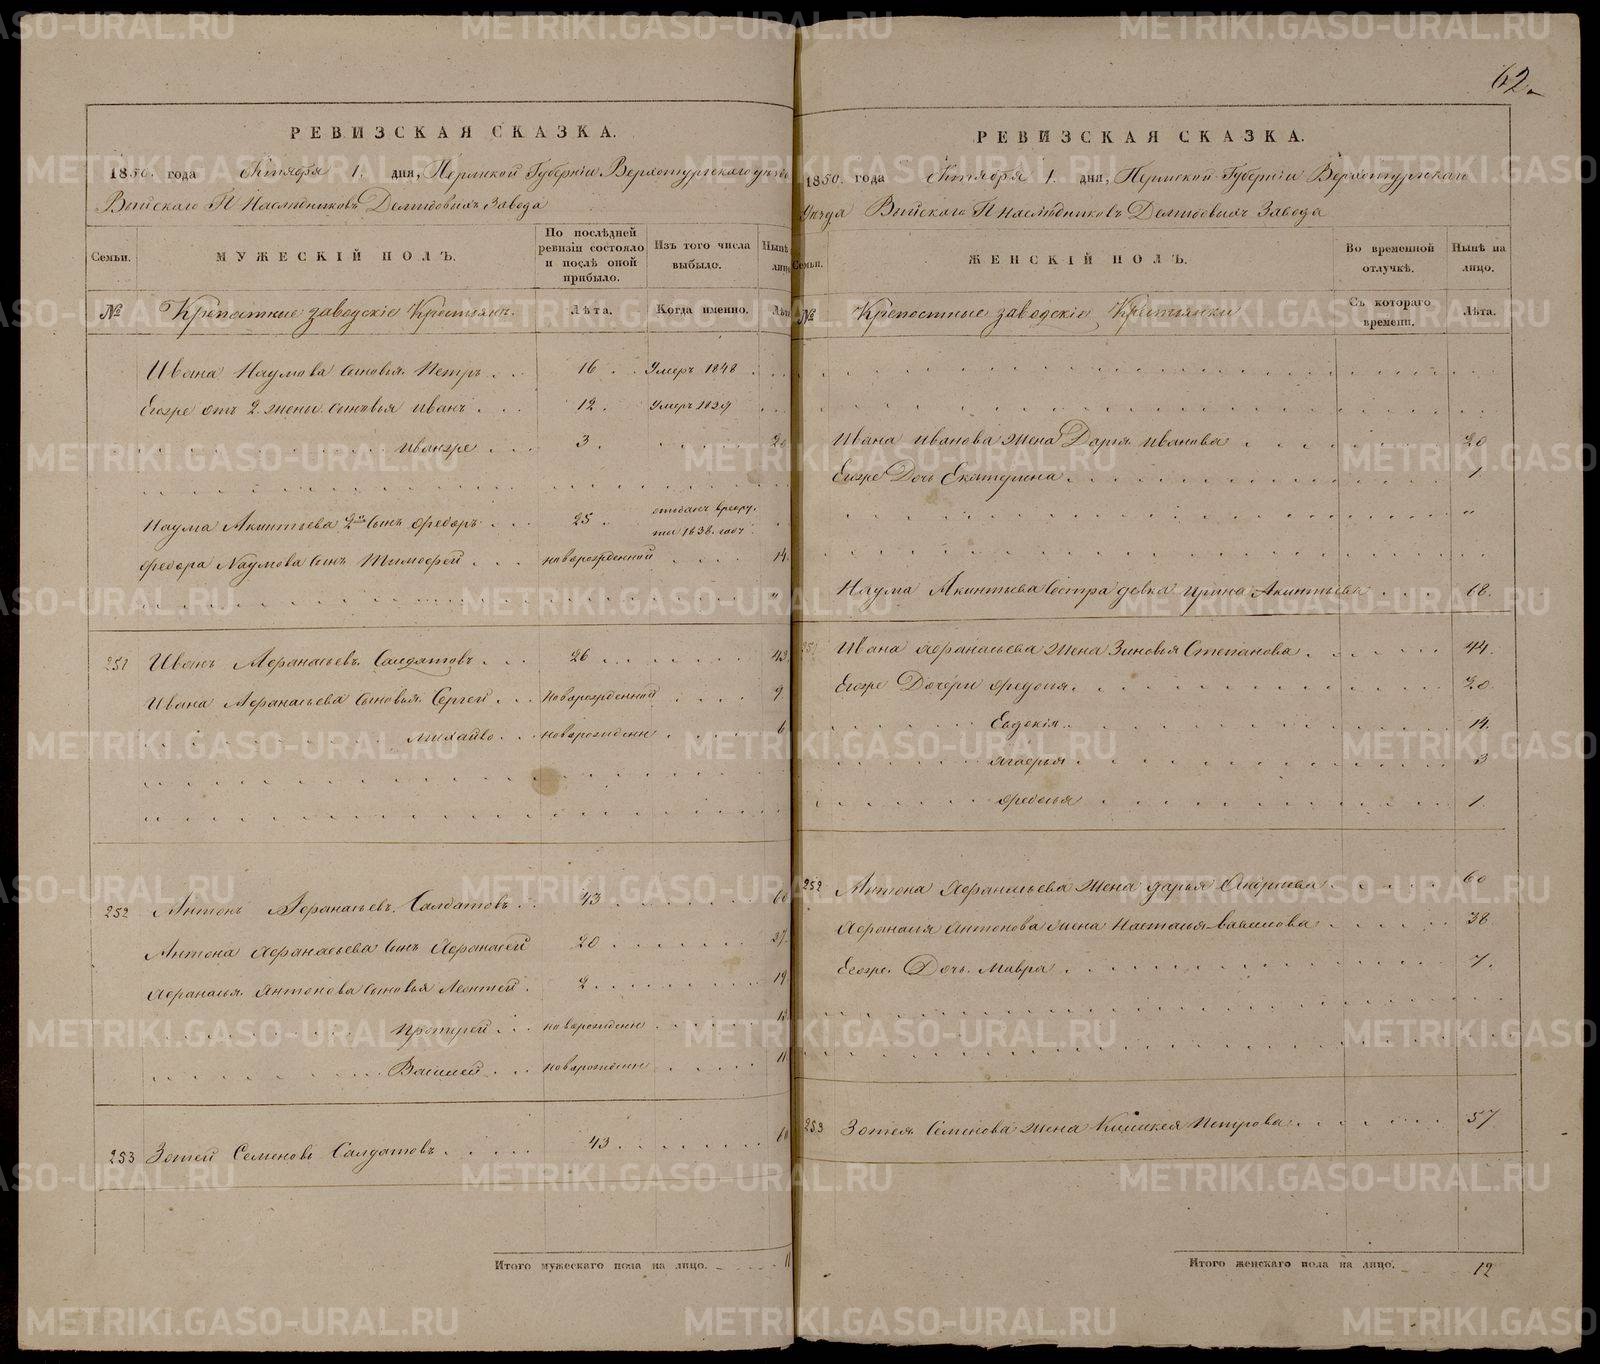 62.
РЕВИЗСКАЯ СКАЗКА.
1850. года Октября 1. дня, Пермской Губернiи Верхотурскаго уѣзда
Выйскаго Г. Наслѣдниковъ Демидовыхъ Завода
Семьи.
МУЖЕСКIЙ ПОЛЪ.
По послѣдней ревизiи состояло и послѣ оной прибыло.
Изъ того числа выбыло.
Нынѣ на лицо
№ Крепостные заводскiе Крестьяне.
Лѣта.
Когда именно.
Лѣта
Ивана Наумова сыновья Петръ 16 Умеръ 1848
Егоже отъ 2. жены сыновья Иванъ 12. Умеръ 1839
Иванже 3. 20
Наума Акинтьева 2й сынъ Федоръ 25 отданъ врекру-
ты 1838. годъ
Федора Наумова сынъ Тимофей новорожденной 14.
251 Иванъ Афанасьевъ Салдатовъ 26 43.
Ивана Афанасьева сыновья Сергей новорожденной 9
Михайло новорожденн 6
252 Антонъ Афанасьевъ Салдатовъ 43 60
Антона Афанасьева сынъ Афанасей 20 37.
Афанасья Антонова сыновья Леонтей 2 19
новорожденн
Василей новорожденн 11
253 Зотей Семеновъ Салдатовъ 43 60
Итого мужескаго пола на лицо. 11
РЕВИЗСКАЯ СКАЗКА.
1850. года Октября 1. дня, Пермской Губернiи Верхотурскаго
Уѣзда Выйскаго Г. Наслѣдниковъ Демидовыхъ Завода
Семьи.
ЖЕНСКIЙ ПОЛЪ.
Во временной отлучкѣ.
Нынѣ на лицо.
№ Крепостные заводскiе Крестьянки
Съ котораго времени.
Лѣта.
Ивана Иванова жена Дарья Иванова 20
Егоже Дочь Екатерина 1
Наума Акинтьева сестра девка Ирина Акинтьева 68.
251 Ивана Афанасьева жена Зиновья Степанова 44.
Егоже Дочери 20.
Евдокiя 14.
Агафья 3
Федосья 1
252 Антона Афанасьева жена Дарья 60
Афанасья Антонова жена Настасья Савинова 38
Егоже Дочь Мавра 7.
253 Зотея Семенова жена Киликея Петрова 57
Итого женскаго пола на лицо. 12
METRIKI.GASO-URAL.RU